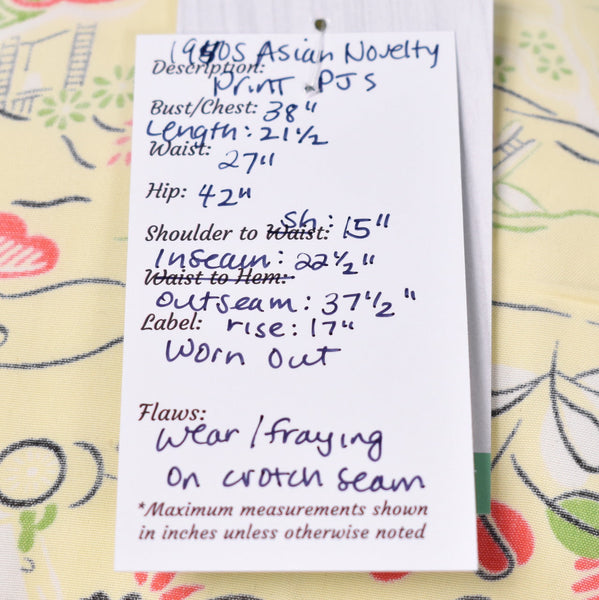 1940s Asian Novelty
Description:
Print PJs
Bust/Chest: 38"
Length: 21 1/2
Waist: 27"
Hip: 42"
Shoulder to Waist: Sh: 15"
Inseam: 22 1/2"
Waist to Hem:
Outseam: 37 1/2"
Label: rise: 17"
Worn Out
Flaws:
Wear/fraying
On crotch seam
*Maximum measurements shown
in inches unless otherwise noted